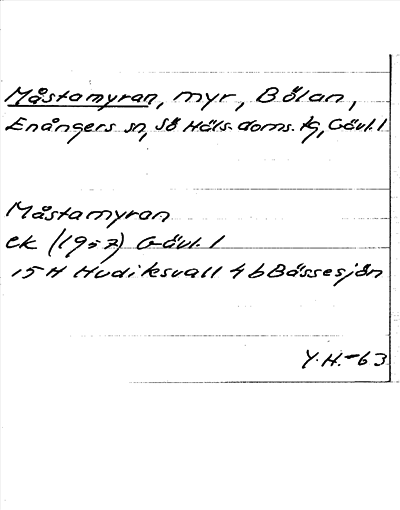 Måstamyran, myr, Bölan,
Enångers sn, Sö Häls. doms. tg, Gävl. l
Måstamyran
ek (1957) Gävl. l
15 H Hudiksvall 4 b Bässesjön
Y. H. -63